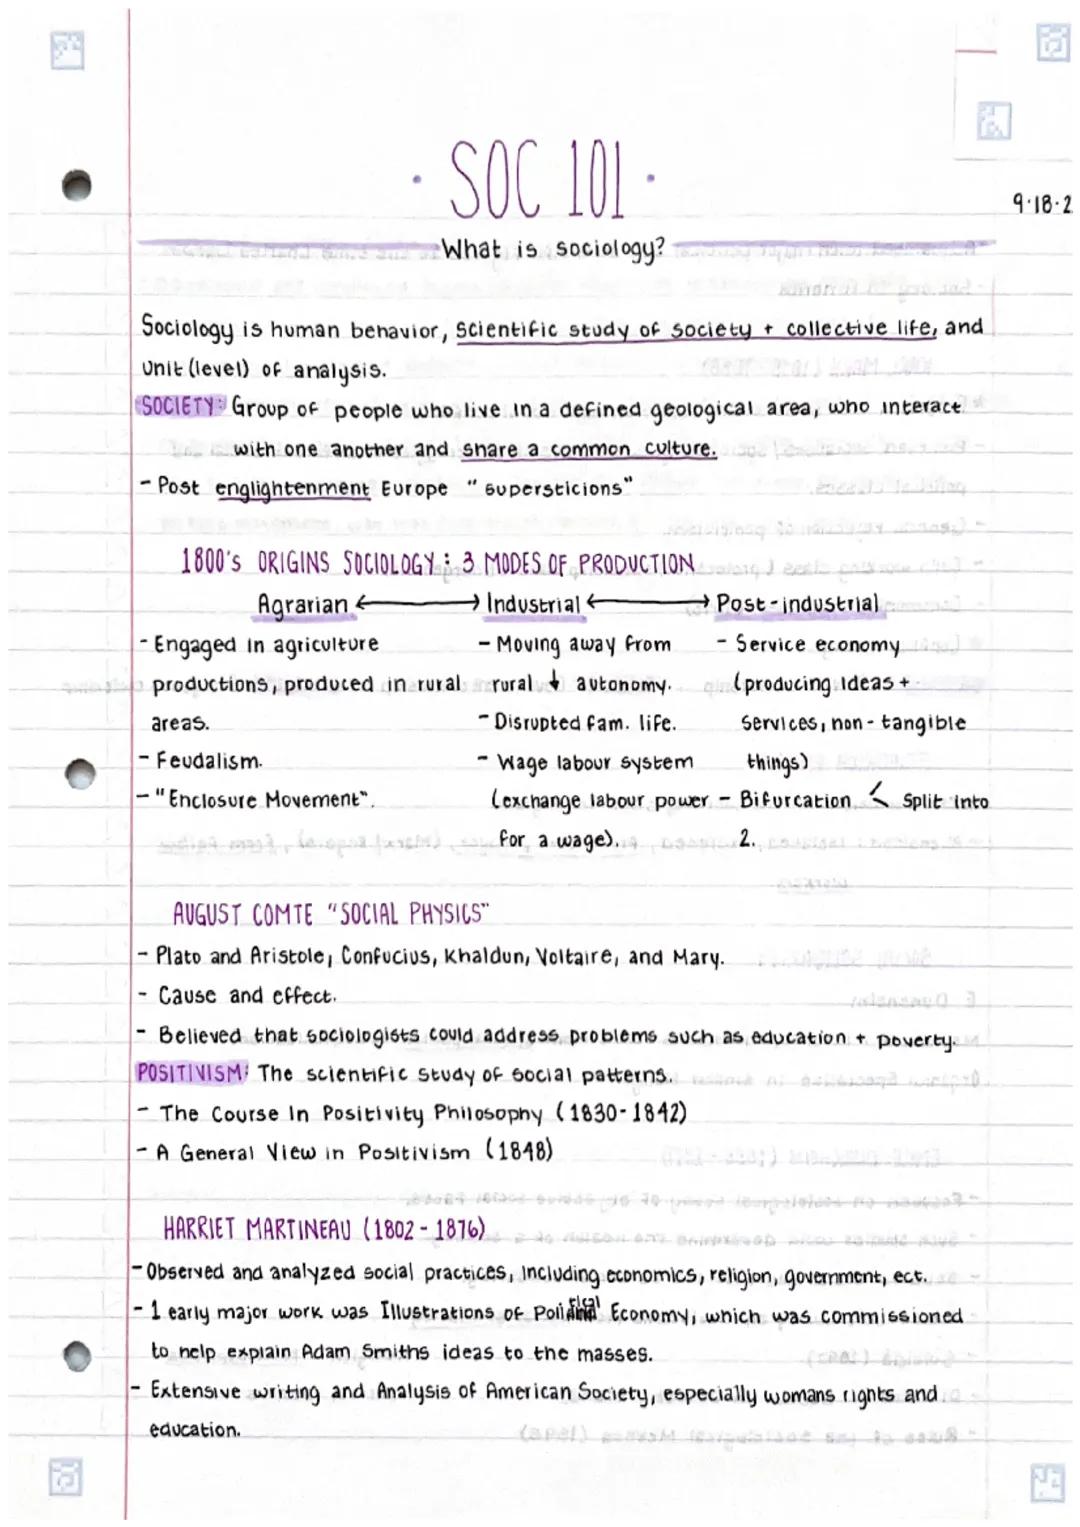 · SOC 101 ·
9·18·2
What is sociology?
Sociology is human behavior, Scientific study of society + collective life, and
Unit (level) of analysis.
SOCIETY: Group of people who live in a defined geological area, who interact
with one another and share a common culture.
- Post englightenment Europe "supersticions"
1800's ORIGINS SOCIOLOGY: 3 MODES OF PRODUCTION
Agrarian ←→ Industrial ←→ Post-industrial
- Engaged in agriculture
productions, produced in rural
areas.
- Feudalism.
- "Enclosure Movement".
- Moving away from
rural ↓ autonomy.
- Disrupted fam. life.
- Wage labour system
(exchange labour power
for a wage).
- Service economy
(producing ideas +
services, non-tangible
things)
- Bifurcation < Split into
2.
AUGUST COMTE "SOCIAL PHYSICS"
- Plato and Aristole, Confucius, Khaldun, Voltaire, and Mary.
- Cause and effect.
- Believed that sociologists could address problems such as education + poverty.
POSITIVISM: The scientific study of social patterns.
- The Course In Positivity Philosophy (1830-1842)
- A General View in Positivism (1848)
HARRIET MARTINEAU (1802-1876)
- Observed and analyzed social practices, Including economics, religion, government, ect.
- 1 early major work was Illustrations of Political Economy, which was commissioned
to help explain Adam Smiths ideas to the masses.
- Extensive writing and Analysis of American Society, especially womans rights and
education.